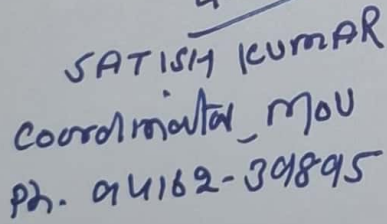 SATISH KUMAR
Coordinator_MOU
Ph. 94162-39895